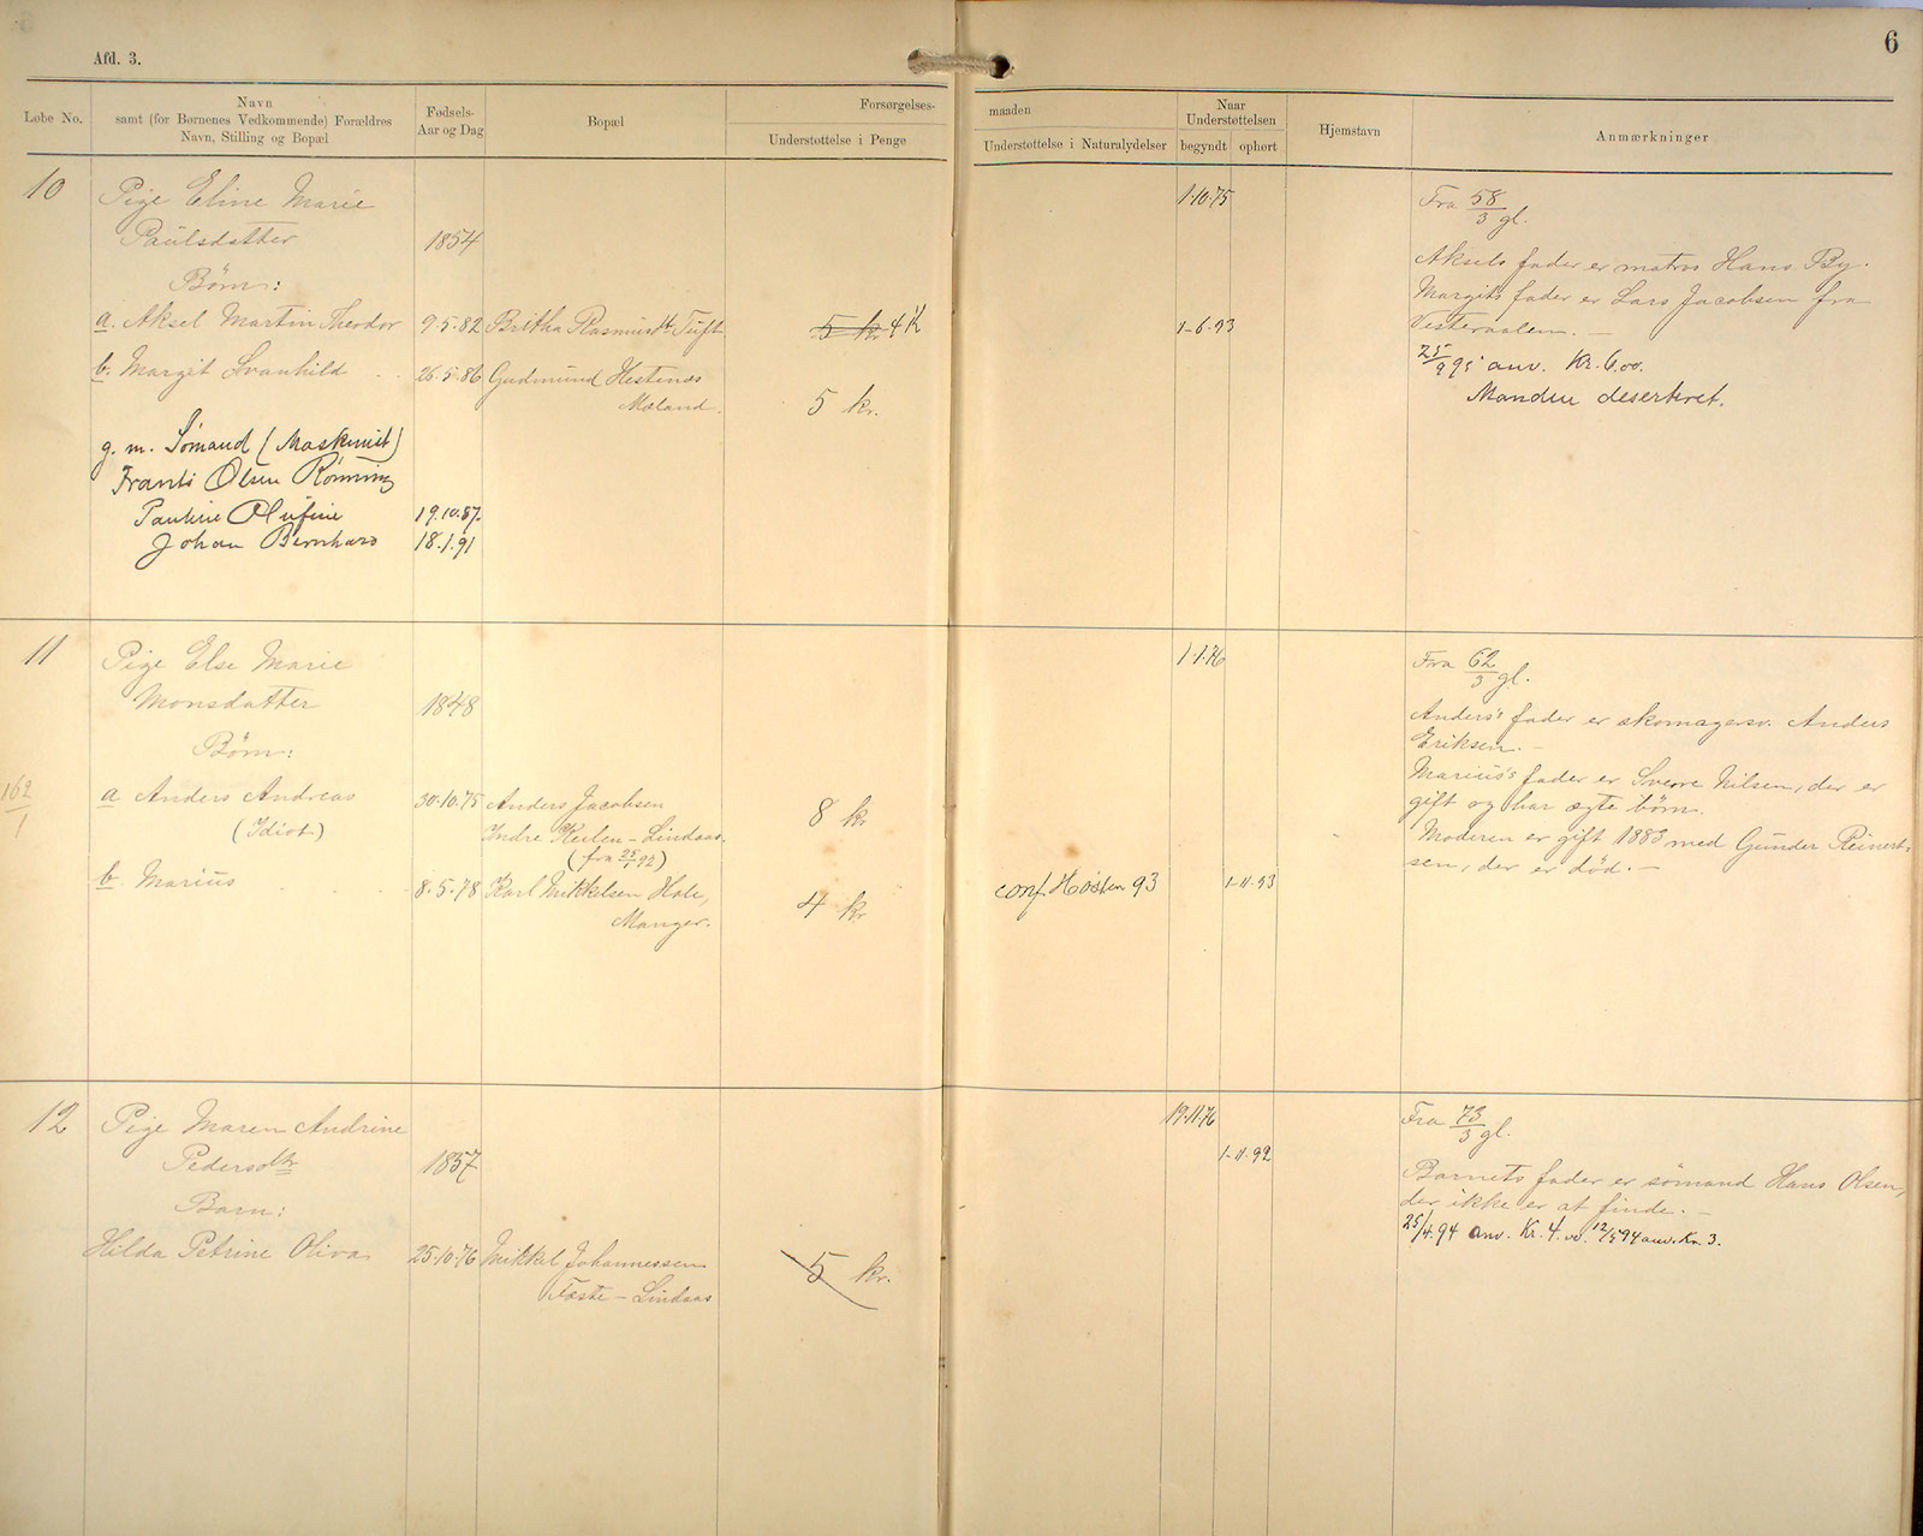 6
Afd. 3.
Løbe No.
Navn
samt (for Børnenes Vedkommende) Forældres
Navn, Stilling og Bopæl
Fødsels-
Aar og Dag
Bopæl
Forsørgelses-
Understøttelse i Penge
maaden
Understøttelse i Naturalydelser
Naar
Understøttelsen
begyndt ophørt
Hjemstavn
Anmærkninger
10
Pige Eline Marie
Paulsdatter 1854
Børn:
a. Aksel Martin Theodor 9.5.82 Britha Rasmusdt Tuft 5 kr 4 K
b. Margit Svanhild 26.5.86 Gudmund Hestenes
Mæland. 5 kr.
g. m. Sömand (Maskinist)
Frants Olsen Rönning
Pauline Olufine 19.10.87.
Johan Bernhard 18.1.91
1.10.75
1-6.93
Fra 58/3 gl.
Aksels fader er matros Hans By.
Margits fader er Lars Jacobsen fra
Vesteraalen. —
25/9 95 anv. Kr. 6.00.
Manden deserteret.
11
Pige Else Marie
Monsdatter 1848
Børn:
162/1
a Anders Andreas 30.10.75 Anders Jacobsen
(Idiot) Indre Keilen – Lindaas.
(fra 25/1 92)
8 kr
b. Marius 8.5.78 Karl Mikkelsen Hole,
Manger.
4 kr
conf. Hösten 93
1.1.76
1-11.93
Fra 62/3 gl.
Anders's fader er skomagersv. Anders
Eriksen. –
Marius's fader er Sverre Nilsen, der er
gift og har ægte börn.
Moderen er gift 1883 med Gunder Reinert-
sen, der er död. –
12
Pige Maren Andrine
Pedersdtr 1857
Barn:
Hilda Petrine Oliva 25.10.76 Mikkel Johannessen
Fæste – Lindaas
5 kr.
19.11.76
1-11.92
Fra 73/3 gl.
Barnets fader er sömand Hans Olsen,
der ikke er at finde. –
25/4.94 anv. Kr. 4.00. 12/5 94 anv. Kr. 3.